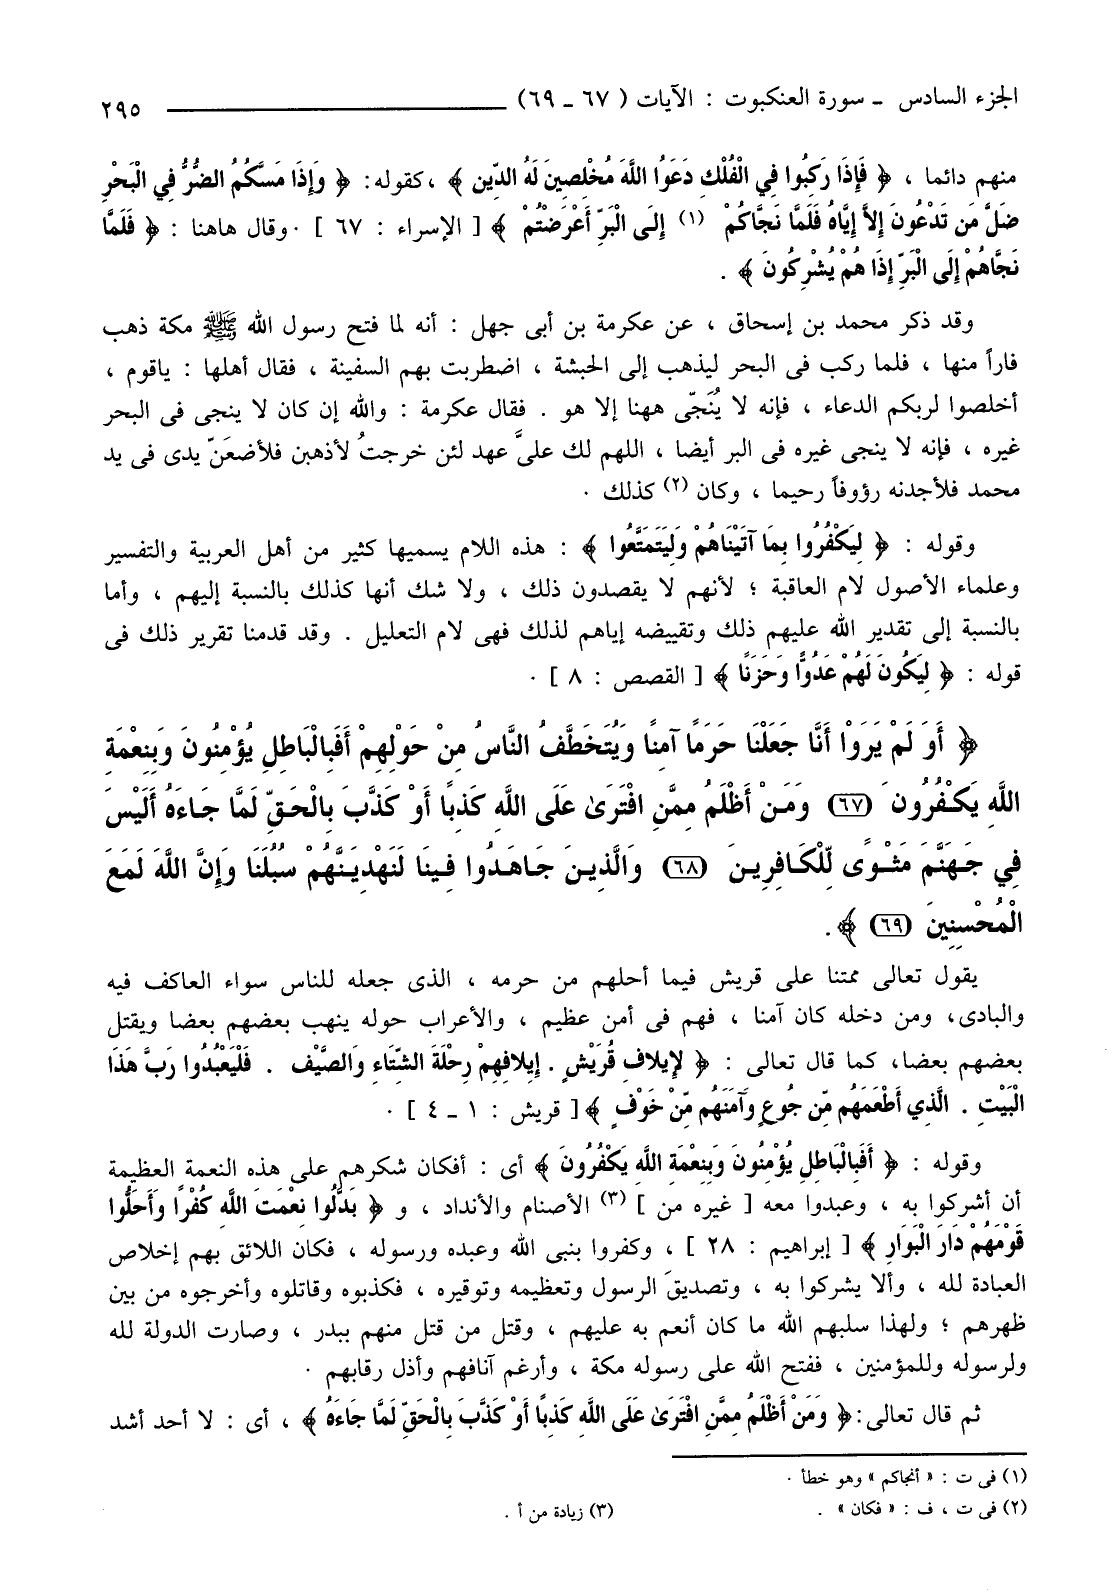 الجزء السادس ـ سورة العنكبوت : الآيات ( ٦٧ ـ ٦٩) ٢٩٥
منهم دائما ، ﴿ فَإِذَا رَكِبُوا فِي الْفُلْكِ دَعَوُا اللَّهَ مُخْلِصِينَ لَهُ الدِّينَ ﴾ ، كقوله: ﴿ وَإِذَا مَسَّكُمُ الضُّرُّ فِي الْبَحْرِ
ضَلَّ مَن تَدْعُونَ إِلاَّ إِيَّاهُ فَلَمَّا نَجَّاكُمْ (١) إِلَى الْبَرِّ أَعْرَضْتُمْ ﴾ [ الإسراء : ٦٧ ] . وقال هاهنا : ﴿ فَلَمَّا
نَجَّاهُمْ إِلَى الْبَرِّ إِذَا هُمْ يُشْرِكُونَ ﴾ .
وقد ذكر محمد بن إسحاق ، عن عكرمة بن أبى جهل : أنه لما فتح رسول الله ﷺ مكة ذهب
فاراً منها ، فلما ركب فى البحر ليذهب إلى الحبشة ، اضطربت بهم السفينة ، فقال أهلها : ياقوم ،
أخلصوا لربكم الدعاء ، فإنه لا يُنَجّى ههنا إلا هو . فقال عكرمة : والله إن كان لا ينجى فى البحر
غيره ، فإنه لا ينجى غيره فى البر أيضا ، اللهم لك علىَّ عهد لئن خرجتُ لأذهبن فلأضعَنّ يدى فى يد
محمد فلأجدنه رؤوفاً رحيما ، وكان (٢) كذلك .
وقوله : ﴿ لِيَكْفُرُوا بِمَا آتَيْنَاهُمْ وَلِيَتَمَتَّعُوا ﴾ : هذه اللام يسميها كثير من أهل العربية والتفسير
وعلماء الأصول لام العاقبة ؛ لأنهم لا يقصدون ذلك ، ولا شك أنها كذلك بالنسبة إليهم ، وأما
بالنسبة إلى تقدير الله عليهم ذلك وتقييضه إياهم لذلك فهى لام التعليل . وقد قدمنا تقرير ذلك فى
قوله : ﴿ لِيَكُونَ لَهُمْ عَدُوًّا وَحَزَنًا ﴾ [ القصص : ٨ ] .
﴿ أَوَ لَمْ يَرَوْا أَنَّا جَعَلْنَا حَرَمًا آمِنًا وَيُتَخَطَّفُ النَّاسُ مِنْ حَوْلِهِمْ أَفَبِالْبَاطِلِ يُؤْمِنُونَ وَبِنِعْمَةِ
اللَّهِ يَكْفُرُونَ (٦٧) وَمَنْ أَظْلَمُ مِمَّنِ افْتَرَىٰ عَلَى اللَّهِ كَذِبًا أَوْ كَذَّبَ بِالْحَقِّ لَمَّا جَاءَهُ أَلَيْسَ
فِي جَهَنَّمَ مَثْوًى لِّلْكَافِرِينَ (٦٨) وَالَّذِينَ جَاهَدُوا فِينَا لَنَهْدِيَنَّهُمْ سُبُلَنَا وَإِنَّ اللَّهَ لَمَعَ
الْمُحْسِنِينَ (٦٩) ﴾ .
يقول تعالى ممتنا على قريش فيما أحلهم من حرمه ، الذى جعله للناس سواء العاكف فيه
والبادى، ومن دخله كان آمنا ، فهم فى أمن عظيم ، والأعراب حوله ينهب بعضهم بعضا ويقتل
بعضهم بعضا، كما قال تعالى : ﴿ لإِيلافِ قُرَيْشٍ . إِيلافِهِمْ رِحْلَةَ الشِّتَاءِ وَالصَّيْفِ . فَلْيَعْبُدُوا رَبَّ هَذَا
الْبَيْتِ . الَّذِي أَطْعَمَهُم مِّن جُوعٍ وَآمَنَهُم مِّنْ خَوْفٍ ﴾ [ قريش : ١ ـ ٤ ] .
وقوله : ﴿ أَفَبِالْبَاطِلِ يُؤْمِنُونَ وَبِنِعْمَةِ اللَّهِ يَكْفُرُونَ ﴾ أى : أفكان شكرهم على هذه النعمة العظيمة
أن أشركوا به ، وعبدوا معه [ غيره من ] (٣) الأصنام والأنداد ، و ﴿ بَدَّلُوا نِعْمَتَ اللَّهِ كُفْرًا وَأَحَلُّوا
قَوْمَهُمْ دَارَ الْبَوَارِ ﴾ [ إبراهيم : ٢٨ ] ، وكفروا بنبى الله وعبده ورسوله ، فكان اللائق بهم إخلاص
العبادة لله ، وألا يشركوا به ، وتصديقَ الرسول وتعظيمه وتوقيره ، فكذبوه وقاتلوه وأخرجوه من بين
ظهرهم ؛ ولهذا سلبهم الله ما كان أنعم به عليهم ، وقتل من قتل منهم ببدر ، وصارت الدولة لله
ولرسوله وللمؤمنين ، ففتح الله على رسوله مكة ، وأرغم آنافهم وأذل رقابهم .
ثم قال تعالى: ﴿ وَمَنْ أَظْلَمُ مِمَّنِ افْتَرَىٰ عَلَى اللَّهِ كَذِبًا أَوْ كَذَّبَ بِالْحَقِّ لَمَّا جَاءَهُ ﴾ ، أى : لا أحد أشد
(١) فى ت : « أنجاكم » وهو خطأ .
(٢) فى ت ، ف : « فكان » . (٣) زيادة من أ .